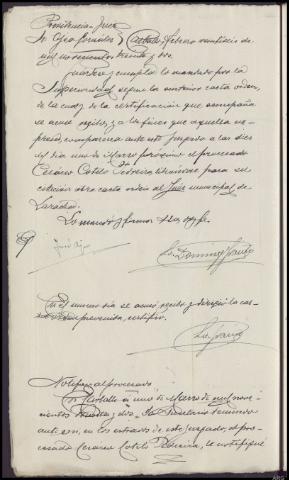 Providencia Juez
Sr. Ojea Fernández } Carballo, febrero veintiseis de
mil novecientos treinta y dos.
Guárdese y cumpla lo mandado por la
Superioridad según la anterior carta orden,
de la cual y de la certificación que acompaña
se acuse recibo, y a los fines que aquella ex-
presa, comparezca ante este Juzgado a las diez
del día uno de Marzo próximo el procesado
Cesáreo Cotelo Pereira, librándose para su
citación otra carta orden al Juez municipal de
Laracha.
Lo mandó y firma S.Sª doy fe.
En el mismo día se acusó recibo y dirigió la car-
ta orden prevenida, certifico.
Notificación al procesado
En Carballo a uno de Marzo de mil nove-
cientos treinta y dos. Yo Secretario teniendo
ante mi, en los estrados de este Juzgado, al pro-
cesado Cesáreo Cotelo Pereira, le notifiqué